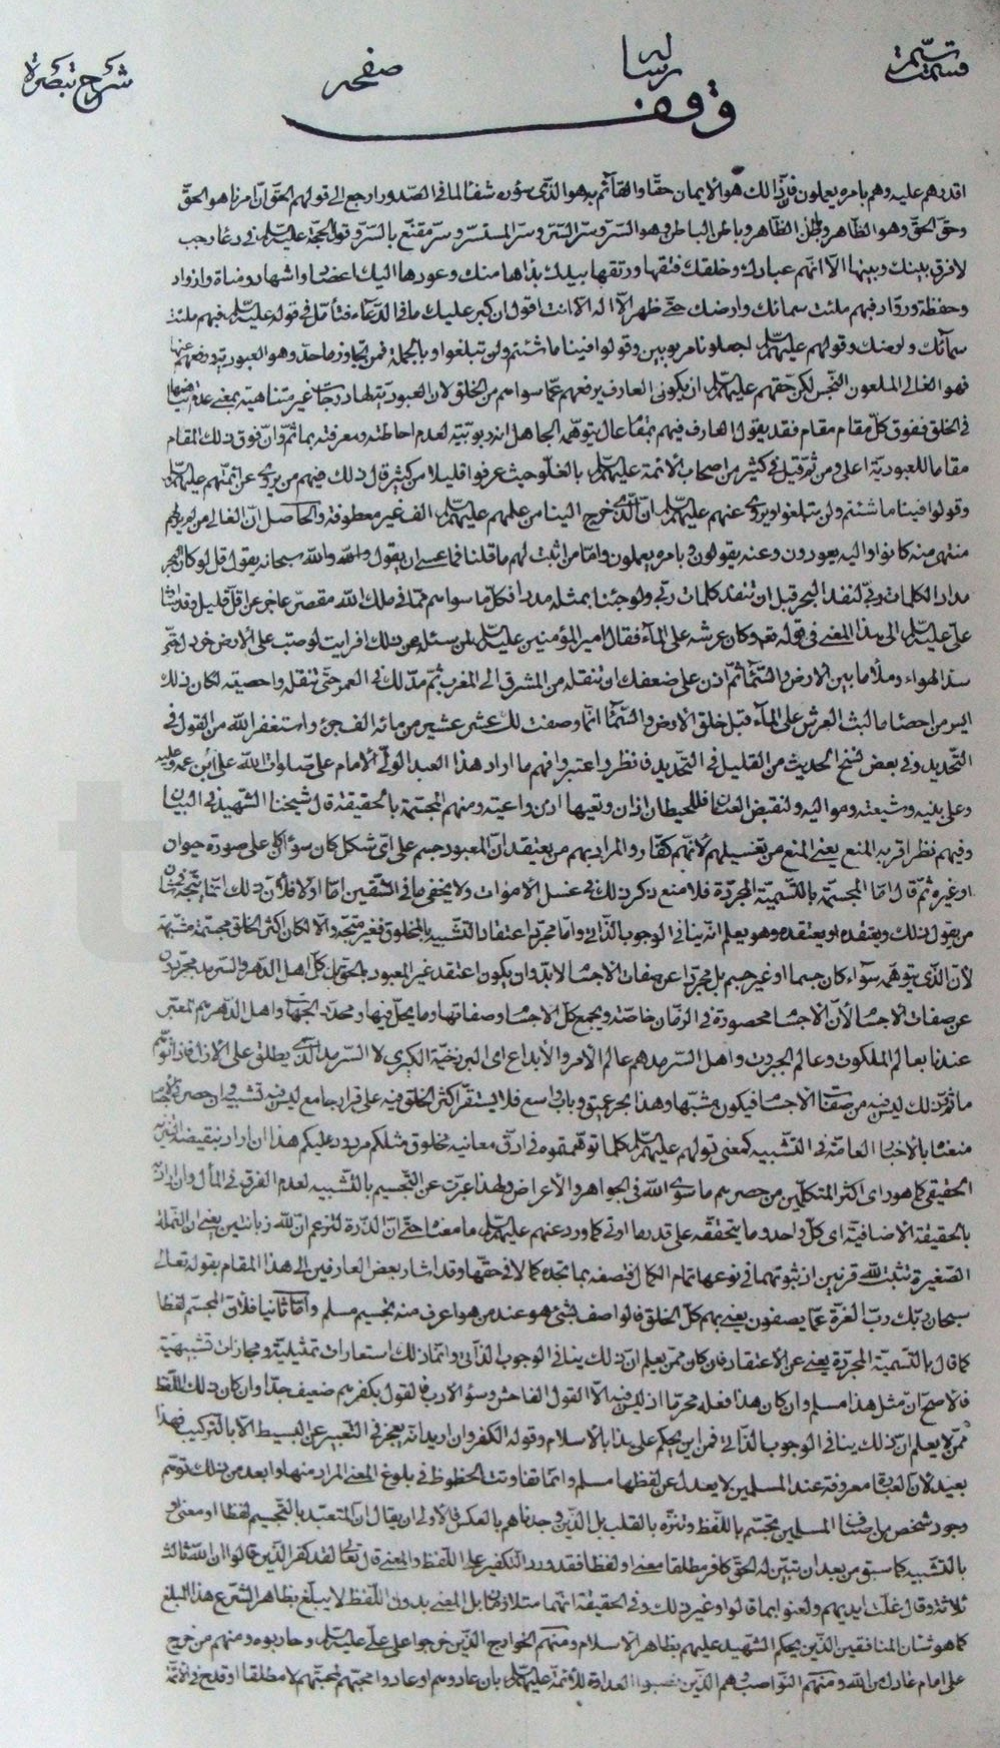 قسمت رساله صفحه شرح تبصرة
وقف
اقدرهم عليه وهم بامره يعملون فان ذلك هو الايمان حقا والقائم به هو الذى سؤره شفآء لما فى الصدور ارجع الى قولهم الحق ان امرنا هو الحق
وحق الحق وهو الظاهر وباطن الظاهر وباطن الباطن وهو السر وسر السر وسر المستسر وسر مقنع بالسر وقول الحجة عليه السلام فى دعاء رجب
لا فرق بينك وبينها الا انهم عبادك وخلقك فتقها ورتقها بيدك بدؤها منك وعودها اليك اعضاد واشهاد ومناة وازواد
وحفظة ورواد فبهم ملئت سمائك وارضك حتى ظهر ان لا اله الا انت اقول ان كبر عليك ما فى الدعاء فتأمل فى قوله عليه السلام فبهم ملئت
سمآئك وارضك وقولهم عليهم السلام اجعلونا مربوبين وقولوا فينا ما شئتم ولن تبلغوا وبالجملة فمن تجاوز ما حد وهو العبودية ورفعهم عنها
فهو الغالى الملعون النجس لكن حقهم عليهم السلام ان يكون العارف يرفعهم عما سواهم من الخلق لان العبودية لها درجات غير متناهية بمعنى عدم تناهيها
فى الخلق ففوق كل مقام مقام فقد يقول العارف فيهم بمقام عال يتوهمه الجاهل انه ربوبية لعدم احاطته ومعرفته بما ثم وان فوق ذلك المقام
مقاما للعبودية اعلى ومن ثم قيل فى كثير من اصحاب الائمة عليهم السلام بالغلو حيث عرفوا قليلا من كثير قال ذلك فيهم من يروى عن ائمتهم عليهم السلام
وقولوا فينا ما شئتم ولن تبلغوا ويروى عنهم عليهم السلام ان الذى خرج الينا من علمهم عليهم السلام الف غير معطوفة والحاصل ان الغالى من لم يرهم
منتهى منه كانوا واليه يعودون وعنه يقولون وبامره يعملون واما من اثبت لهم ما قلنا فما عسى ان يقول والله والله سبحانه يقول قل لو كان البحر
مدادا لكلمات ربى لنفد البحر قبل ان تنفد كلمات ربى ولو جئنا بمثله مددا فكل ما سواهم مما فى ملك الله مقصر عاجز عن اقل قليل وقد اشار
على عليه السلام الى هذا المعنى فى قوله تعالى وكان عرشه على المآء فقال امير المؤمنين عليه السلام لمن سئله عن ذلك افرايت لو صب على الارض خردل حتى
سد الهواء وملأ ما بين الارض والسمآء ثم اذن على ضعفك ان تنقله من المشرق الى المغرب ثم مد لك فى العمر حتى تنقله واحصيته لكان ذلك
ايسر من احصاء ما لبث العرش على المآء قبل خلق الارض والسمآء انما وصفت لك عشر عشير من مائة الف جزء واستغفر الله من القول فى
التحديد وفى بعض نسخ الحديث من القليل فى التحديد فانظر واعتبر وافهم ما اراد هذا العبد الولى الامام على صلوات الله على ابن عمه وعليه
وعلى بنيه وشيعته ومواليه ولنقبض العنان فللحيطان اذان وتعيها اذن واعية ومنهم المجسمة بالحقيقة قال شيخنا الشهيد فى البيان
وفيهم نظر اقربه المنع يعنى المنع من تغسيلهم لانهم كفار والمراد بهم من يعتقد ان المعبود جسم على اى شكل كان سوآء كان على صورة حيوان
او غيره ثم قال اما المجسمة بالتسمية المجردة فلا منع ذكر ذلك فى غسل الاموات ولا يخفى ما فى الشقين اما اولا فلأن ذلك انما يتجه فى شأن
من يقول ذلك ويعتقده او يعتقده وهو يعلم انه ينافى الوجوب الذاتى واما مجرد اعتقاد التشبيه بالمخلوق فغير متجه والا لكان اكثر الخلق مجسمة مشبهة
لأن الذى يتوهمه سوآء كان جسما او غير جسم بل مجردا عن صفات الاجسام لابد وان يكون اعتقد غير المعبود بالحق بل كل اهل الدهر والسرمد مجردون
عن صفات الاجسام لأن الاجسام محصورة فى الزمان خاصة ويجمع كل الاجسام وصفاتها وما يحل فيها ومحدد الجهات واهل الدهر هم المعبر
عندنا بعالم الملكوت وعالم الجبروت واهل السرمد هم عالم الامر والابداع اى البرزخية الكبرى لا السرمد الذى يطلق على الازل فاذا توهم
ما ثم من ذلك ليس فيه من صفات الاجسام فيكون مشبها وهذا بحر عميق وباب واسع فلا يستقر اكثر الخلق فيه على قرار جامع ليس فيه تشبيه وان حصر
منعنا بالاخبار العامة فى التشبيه كمعنى قولهم عليهم السلام كلما توهمتموه فى ادق معانيه مخلوق مثلكم مردود عليكم هذا ان اراد بنقيضه
الحقيقى كما هو راى اكثر المتكلمين من حصرهم ما سوى الله فى الجواهر والأعراض ولهذا عبرت عن التجسيم بالتشبيه لعدم الفرق فى المأل وان اراد
بالحقيقة الاضافية اى كل واحد وما يتحققه على قدرها اوتى كما ورد عنهم عليهم السلام ما معناه حتى ان الذرة لتزعم ان لله زبانتين يعنى ان النملة
الصغيرة تثبت لله قرنين اذ ثبوتهما فى نوعها تمام الكمال فتصفه بما تجده كمالا فى حقها وقد اشار بعض العارفين الى هذا المقام بقوله تعالى
سبحان ربك رب العزة عما يصفون يعنى بهم كل الخلق فالواصف بشئ هو عند من هو اعرف منه تجسيم مسلم واما ثانيا فلأن المجسم لفظا
كما قال بالتسمية المجردة يعنى عن الاعتقاد فان كان ممن يعلم ان ذلك ينافى الوجوب الذاتى وانما ذلك استعارات تمثيلية ومجازات تشبيهية
فالاصح ان مثل هذا مسلم وان كان هذا فعله محرما اذ ليس فيه الا القول الفاحش وسوء الادب فالقول بكفرهم ضعيف جدا وان كان ذلك اللفظ
ممن لا يعلم ان ذلك ينافى الوجوب الذاتى فمن اين يحكم على هذا بالاسلام وقوله الكفر وان اريد انه يعجز فى التعبير عن البسيط الا بالتركيب فهذا
بعيد لأن العبارة معروفة عند المسلمين لا يعدل عن لفظها مسلم وانما تفاوتت الحظوظ فى بلوغ المعنى المراد منها وابعد من ذلك توهم
وجود شخص من اصناف المسلمين يجسم باللفظ وينزه بالقلب بل الذين وجدناهم بالعكس فالاولى ان يقال ان المتعبد بالتجسيم لفظا او معنى او
بالتشبيه كما سبق من بعد ان تبين له الحق كافر مطلقا معنى او لفظا فقد ورد التكفير على اللفظ والمعنى قال تعالى لقد كفر الذين قالوا ان الله ثالث
ثلاثة وقال غلت ايديهم ولعنوا بما قالوا وغير ذلك وفى الحقيقة انهما متلازمان بل المعنى بدون اللفظ لا يبلغ بظاهر الشرع هذا المبلغ
كما هو شان المنافقين الذين يحكم الشهيد عليهم بظاهر الاسلام ومنهم الخوارج الذين خرجوا على على عليه السلام وحاربوه ومنهم من خرج
على امام عادل من الله ومنهم النواصب وهم الذين نصبوا العداوة للائمة عليهم السلام بان عادوهم او عادوا محبهم لمحبتهم لا مطلقا او قدح فى الائمة